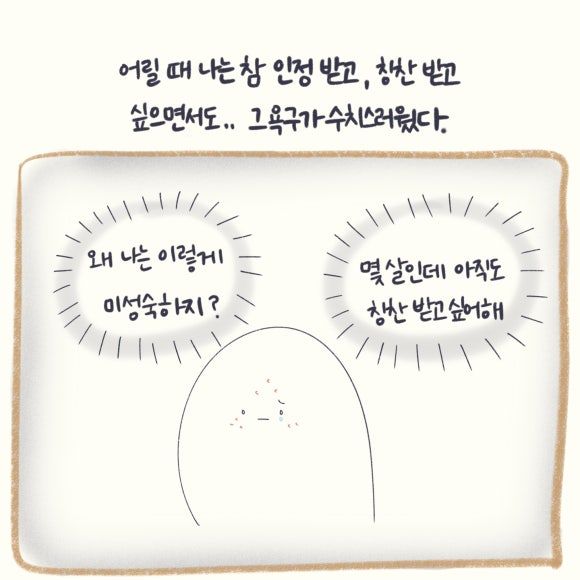 어릴 때 나는 참 인정 받고, 칭찬 받고
싶으면서도.. 그 욕구가 수치스러웠다.
왜 나는 이렇게
미성숙하지?
몇 살인데 아직도
칭찬 받고 싶어해